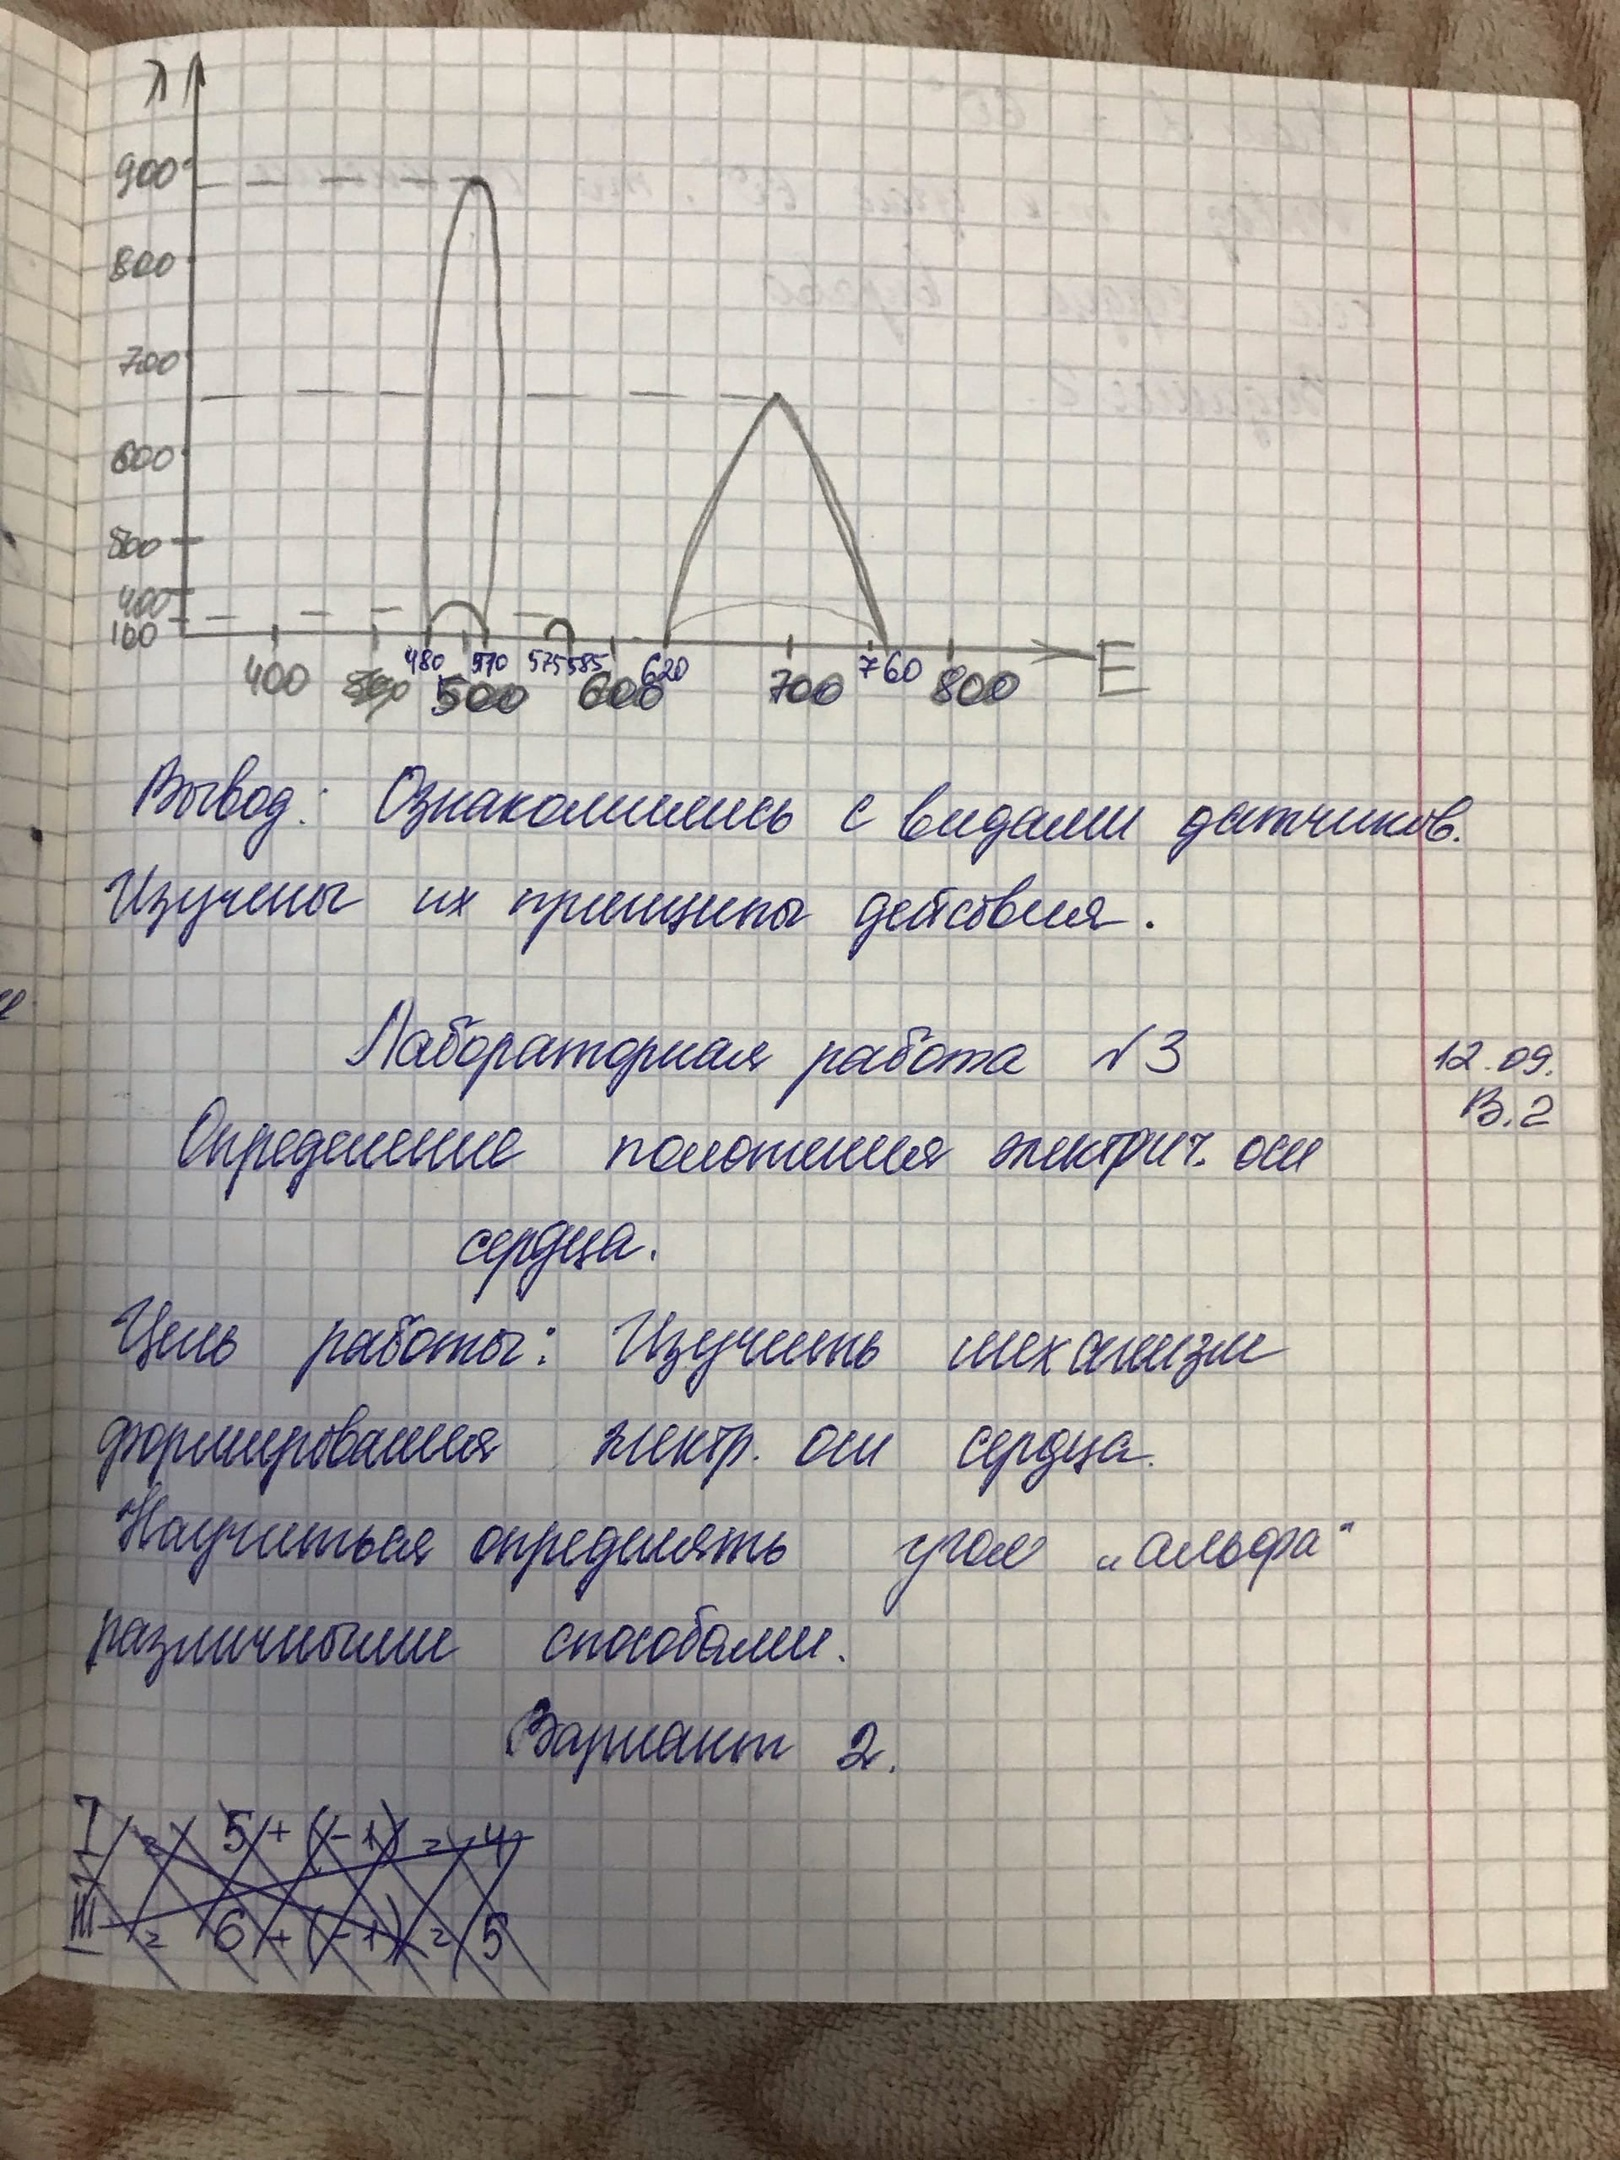 λ
900
800
700
600
500
400
100
480 510 575 585 620 760
400 500 600 700 800 E
Вывод: Ознакомились с видами датчиков.
Изучены их принципы действия.
Лабораторная работа №3 12.09.
В.2
Определение положения электрич. оси
сердца.
Цель работы: Изучить механизм
формирования электр. оси сердца.
Научиться определять угол „альфа“
различными способами.
Вариант 2.
I = 5 + (-1) = 4
III = 6 + (-1) = 5